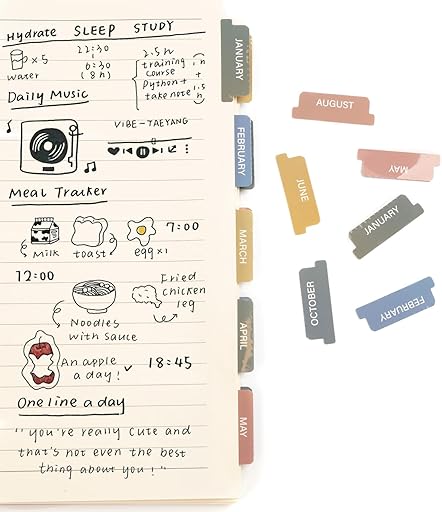 Hydrate SLEEP STUDY
x5
water
22:30
6:30
(8h)
2.5h
training
course
python+
take note
1h
+
1.5
h
Daily Music
VIBE-TAEYANG
Meal Tracker
Milk toast egg×1 7:00
12:00
Noodles
with sauce
Fried
chicken
leg
An apple
a day! 18:45
One line a day
"you're really cute and
that's not even the best
thing about you!"
JANUARY
FEBRUARY
MARCH
APRIL
MAY
AUGUST
MAY
JUNE
JANUARY
OCTOBER
FEBRUARY